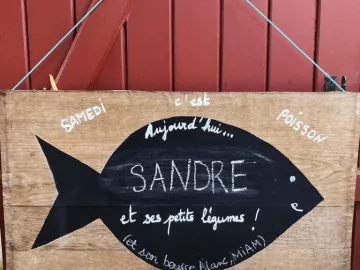 SAMEDI c'est POISSON
Aujourd'hui...
SANDRE
et ses petits légumes !
(et son beurre blanc, MIAM)